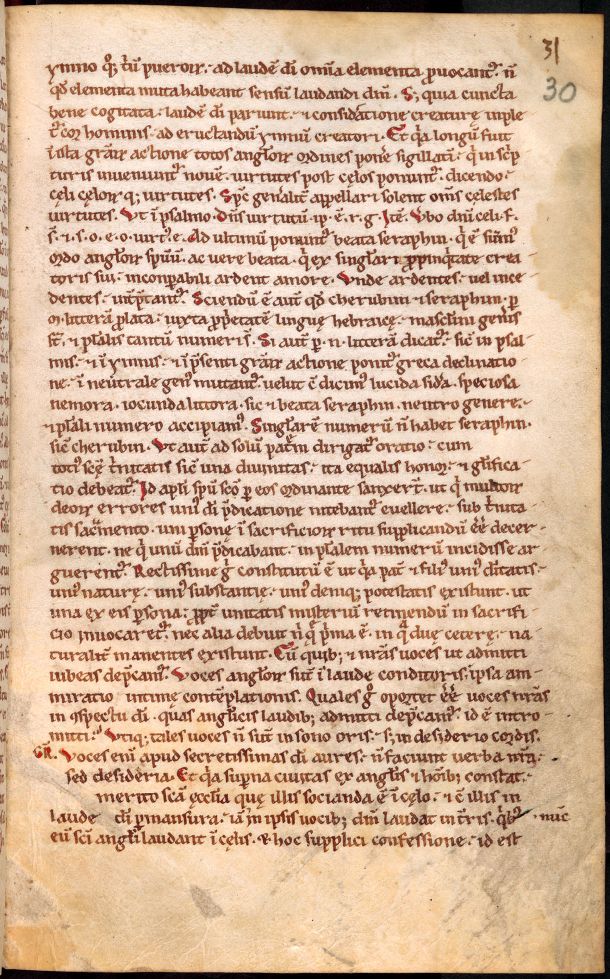 31
30
ymno q; t̄ũ pueroꝝ. ad laudē dı̄ om̄ia elementa puocant᷑. n̄
qd̄ elementa muta habeant sensū laudandi dn̄m. S; quia cuncta
bene cogitata. laudē dı̄ pariunt. ⁊ considatione creaturę imple
t᷑ cor hominis. ad eructandū ymnū creatori. Et qa longū fuit
ı̄ ista graꝝ actione totos angloꝝ ordines pone sigillatı̄. q in scp
turis inueniunt᷑ nouē. uirtutes post cęlos ponunt᷑. dicendo.
cęli cęloꝝ q; uirtutes. Spc̄ genalit appellari solent om̄s cęlestes
uirtutes. Vt ı̄ psalmo. Dn̄s uirtutū ip. ē. r. g. Itē. Vbo dn̄i celi. f.
s̄. ⁊ s. o. e. o. uirt; e. Ad ultimū ponunt᷑ beata seraphin. q ē sūm;
ordo angloꝝ spūū. ac uere beata. q ex singlari ppinqtate crea
toris sui. inconpabili ardent amore. Vnde ardentes. uel ince
dentes. intptant᷑. Sciendū ē aut̄ qd̄ cherubin ⁊ seraphin. p
.n. litterā plata. iuxta ppetatē linguę hebraicę. masclini genis
st̄. ⁊ plalis tantū numeri s̄. Si aut̄ p. n. litterā dicat᷑. sic̄ in psal
mis. ⁊ ı̄ ymnis. ⁊ ı̄ psenti graꝝ actione ponit᷑ greca declinatio
ne. ı̄ neutrale gen; mutant᷑. uelut ē dicim; lucida sida. speciosa
nemora. iocunda littora. sic ⁊ beata seraphin. neutro genere.
⁊ plali numero accipiam;. Singlarē numerū n̄ habet seraphin.
sic̄ cherubin. Vt aut̄ ad solū patrē dirigat᷑ oratio. cum
toti; scę tnitatis sic̄ una diuinitas. ita equalis honor. ⁊ glifica
tio debeat᷑. Id apli spū sc̄o p eos ordinante sanxert̄. ut q multoꝝ
deoꝝ errores uni; dı̄ pdicatione nitebant᷑ euellere. sub tnita
tis sacm̄ento. uni psonę ı̄ sacrificioꝝ ritu supplicandū ēē decer
nerent. ne q unū dm̄ pdicabant. in plalem numerū incidisse ar
guerent᷑. Rectissime g constitutū ē ut qa pat̄ ⁊ fili; uni; dı̄tatis.
uni; naturę. uni; substantię. uni; deniq; potestatis existunt. ut
una ex eis psona; ppt unitatis misteriū retinendū in sacrifi
cio inuocaret᷑. nec alia debuit n̄ q pma ē. in q duę cetere. na
turalit manentes existunt. Cū quib; ⁊ nr̄as uoces ut admitti
iubeas depcam᷑. Voces angloꝝ sūt ı̄ laude conditoris. ipsa am
miratio intimę contēplationis. Quales g oportet ēē uoces nr̄as
in cspectu dı̄. quas anglicis laudib; admitti depcam᷑. id ē intro
mitti. Vtiq; tales uoces n̄ sūt in sono oris. s; in desiderio cordis.
GR. Voces enı̄ apud secretissimas dı̄ aures. n̄ faciunt uerba nr̄a.
sed desideria. Et qa supna ciuitas ex anglis ⁊ hoı̄b; constat.
merito sc̄a ęcclia quę illis socianda ē ı̄ cęlo. ⁊ c̄ illis in
laude dı̄ pmansura. iā m̄ ipsis uocib; dm̄ laudat in tris. qb; nūc
eū sc̄i angli laudant ı̄ cęlis. ⁊ hoc supplici confessione. id est